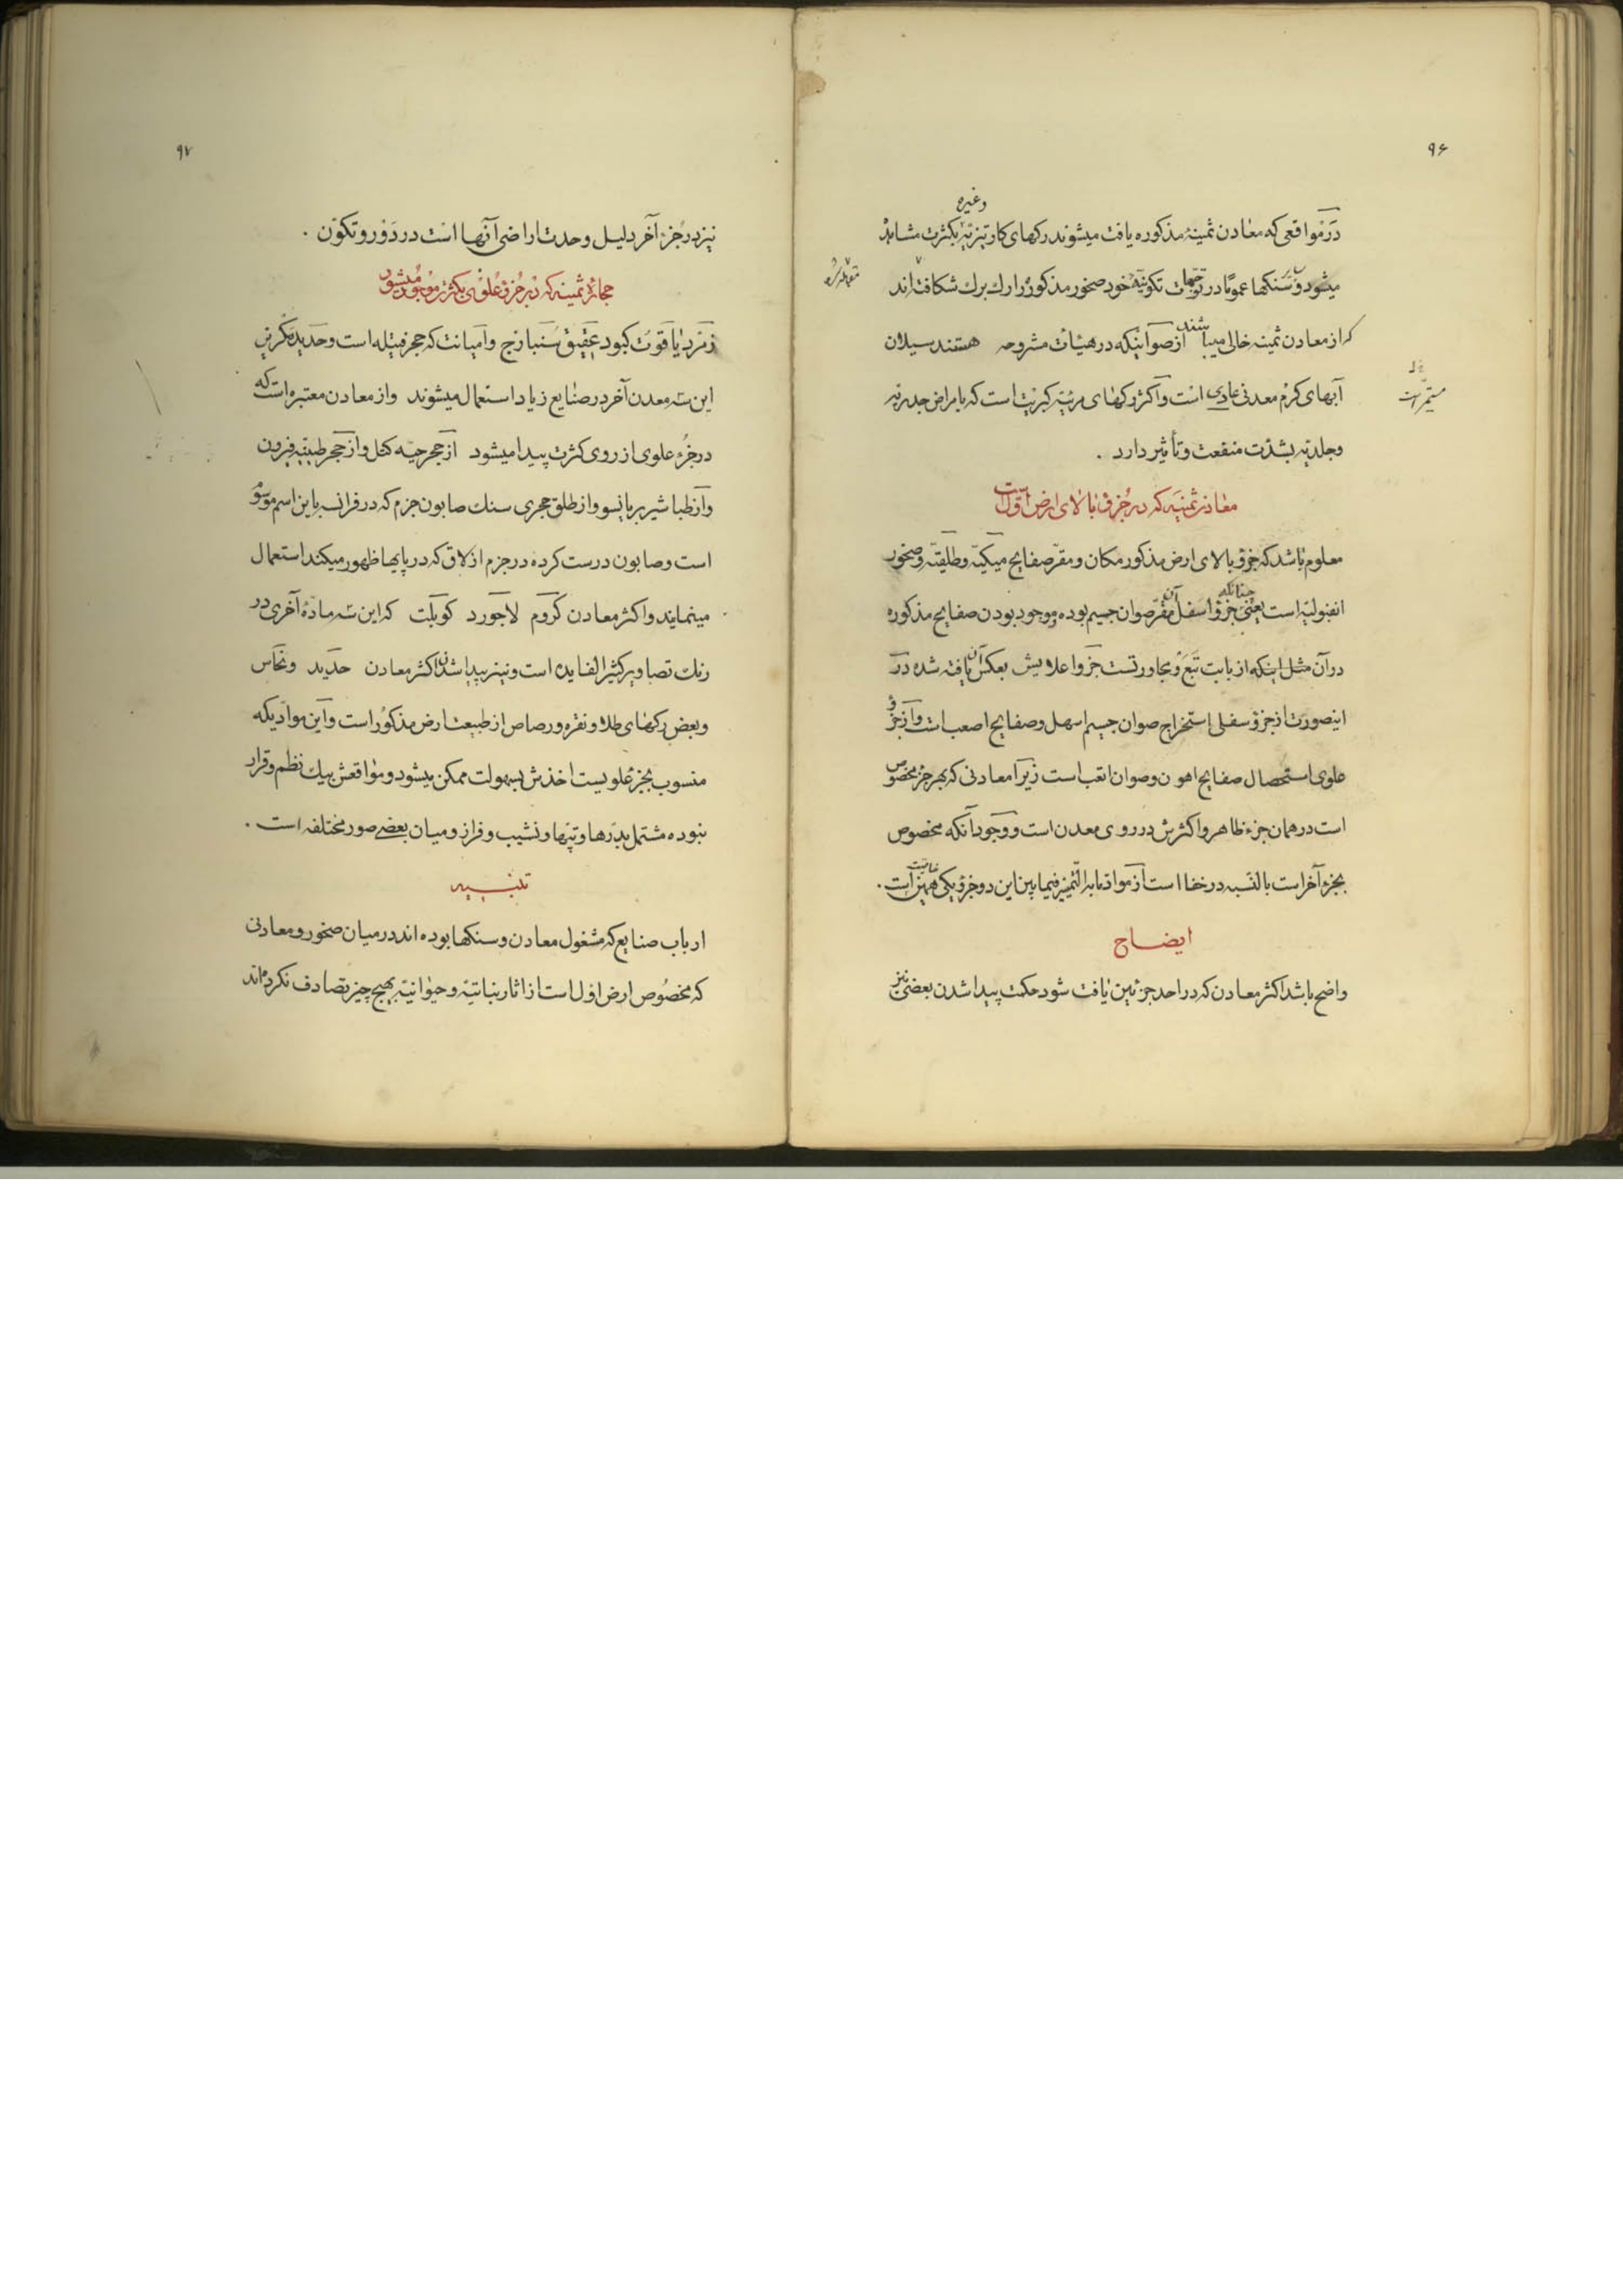 ۹۶
وغیره
در مواقعی که معادن ثمینهٔ مذکوره یافت میشوند رکهای کارتزتیه بکثرت مشاهد
میشود و سنکها عموماً در تکونیهٔ خود صخور مذکور را رك برك شکافته‌اند
که از معادن ثمینه خالی میباشند از صوانیکه در هیئات مشروحه هستند سیلان
آبهای کرم معدنی عادی است و اکثر رکهای مرئیه کبریتی است که بامراض جدریه
مستمر است
وجلدیه بشدّت منفعت و تأثیر دارد .
معادن ثمینه که در جزؤ بالای ارض اوّل است
معلوم باشد که جزؤ بالای ارض مذکور مکان و مقرّ صفایح میکیّه و طلقیّه و صخور
انفبولیّه است چنانکه جزؤ اسفل آن مقرّ صوان جسیم بوده و موجود بودن صفایح مذکوره
در آن مثل اینکه از بابت تبع و مجاورتست جزؤ اعلایش بعکس آن یافته شده در
اینصورت از جزؤ سفلی استخراج صوان جسیم اسهل و صفایح اصعب است و از جزؤ
علوی استحصال صفایح اهون و صوان اتعب است زیرا معادنی که بهر جزء مخصوص
است در همان جزء ظاهر و اکثرش در روی معدن است و وجود آنکه مخصوص
بجزء آخر است بالنّسبه در خفا است از موادّ مابه التّمیز فیمابین این دو جزؤ یکی همین است .
ایضاح
واضح باشد اکثر معادن که در احد جزئین یافت شود حکمت پیدا شدن بعضی نیز
۹۷
نیز در جزء آخر دلیل وحدت اراضی آنها است در دور و تکوّن .
حجارهٔ ثمینه که در جزؤ علوی بکثرت موجود میشود
زمرّد یاقوت کبود عقیق سنباذج و امیانت که حجر فتیله است و حدید مکربن
این سه معدن آخر در صنایع زیاد استعمال میشوند و از معادن معتبره است که
در جزء علوی از روی کثرت پیدا میشود از حجر حیّه کتل و از حجر طبیّه فیرون
و از طباشیر بریانسو و از طلق حجری سنك صابون جزم که در فرانسه باین اسم موسوم
است و صابون درست کرده در جزم ازلاق که در پایها ظهور میکند استعمال
مینمایند و اکثر معادن کروم لاجورد کوبلت که این سه مادّهٔ آخری در
رنك تصاویر کثیر الفایده است و نیز پیدا شدن اکثر معادن حدید و نحاس
و بعض رکهای طلا و نقره و رصاص از طبیعت ارض مذکور است و این موادّیکه
منسوب بجزء علویست اخذش بسهولت ممکن میشود و مواقعش بیك نظم و قرار
نبوده مشتمل بدرّها و تپّها و نشیب و فراز و میان بعضی صور مختلفه است .
تنبیـه
ارباب صنایع که مشغول معادن و سنکها بوده‌اند در میان صخور و معادنی
که مخصوص ارض اوّل است از اثار نباتیّه و حیوانیّه بهیچ چیز تصادف نکرده‌اند